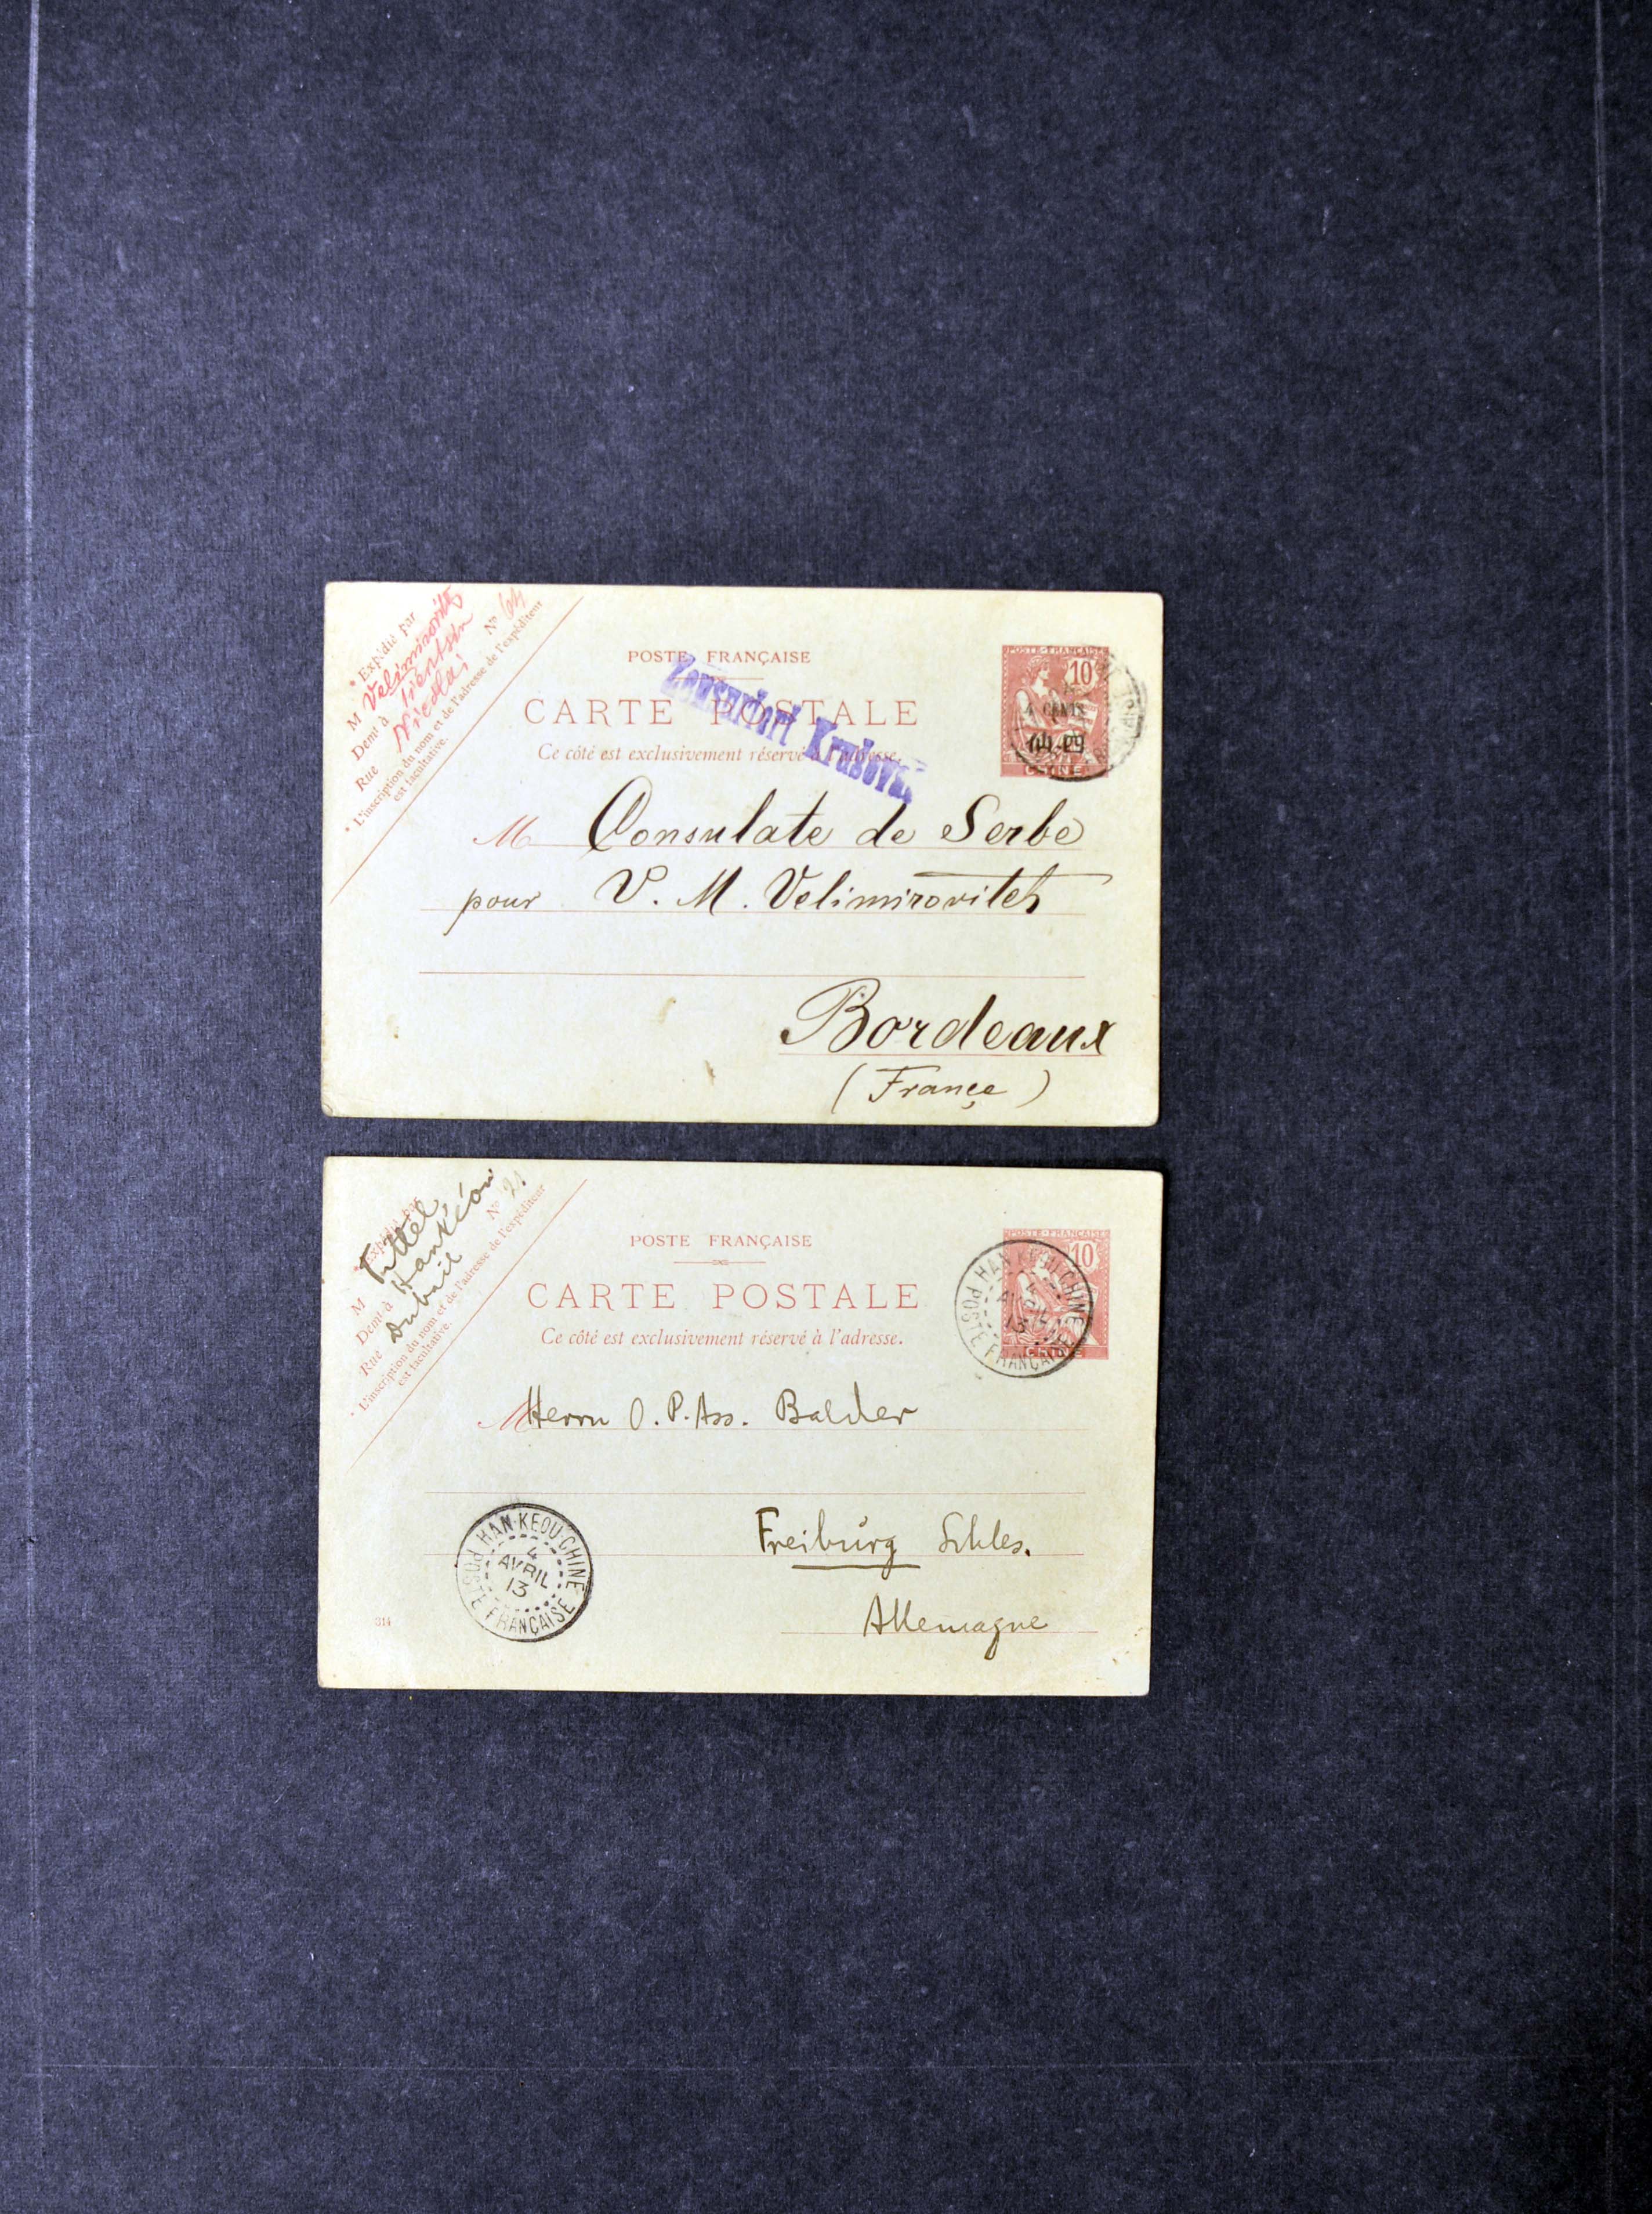 * Expédié par
M Velimirovitch
Demt à Tientsin
Rue
Nº 64
* L'inscription du nom et de l'adresse de l'expéditeur
est facultative.
POSTE FRANÇAISE
CARTE POSTALE
Ce côté est exclusivement réservé à l'adresse.
Zensuriert
POSTE FRANÇAISE
10
4 CENTS
CHINE
M Consulate de Serbe
pour V. M. Velimirovitch
Bordeaux
(Françe)
* Expédié par
M Tittel
Demt à Hankéou
Rue Dubail
Nº 21
* L'inscription du nom et de l'adresse de l'expéditeur
est facultative.
POSTE FRANÇAISE
CARTE POSTALE
Ce côté est exclusivement réservé à l'adresse.
POSTE FRANÇAISE
10
CHINE
HAN-KEOU CHINE
4
AVRIL
13
POSTE FRANÇAISE
M Herrn O. P. Ass. Balder
Freiburg Schles.
Allemagne
HAN-KEOU-CHINE
4
AVRIL
13
POSTE FRANÇAISE
314